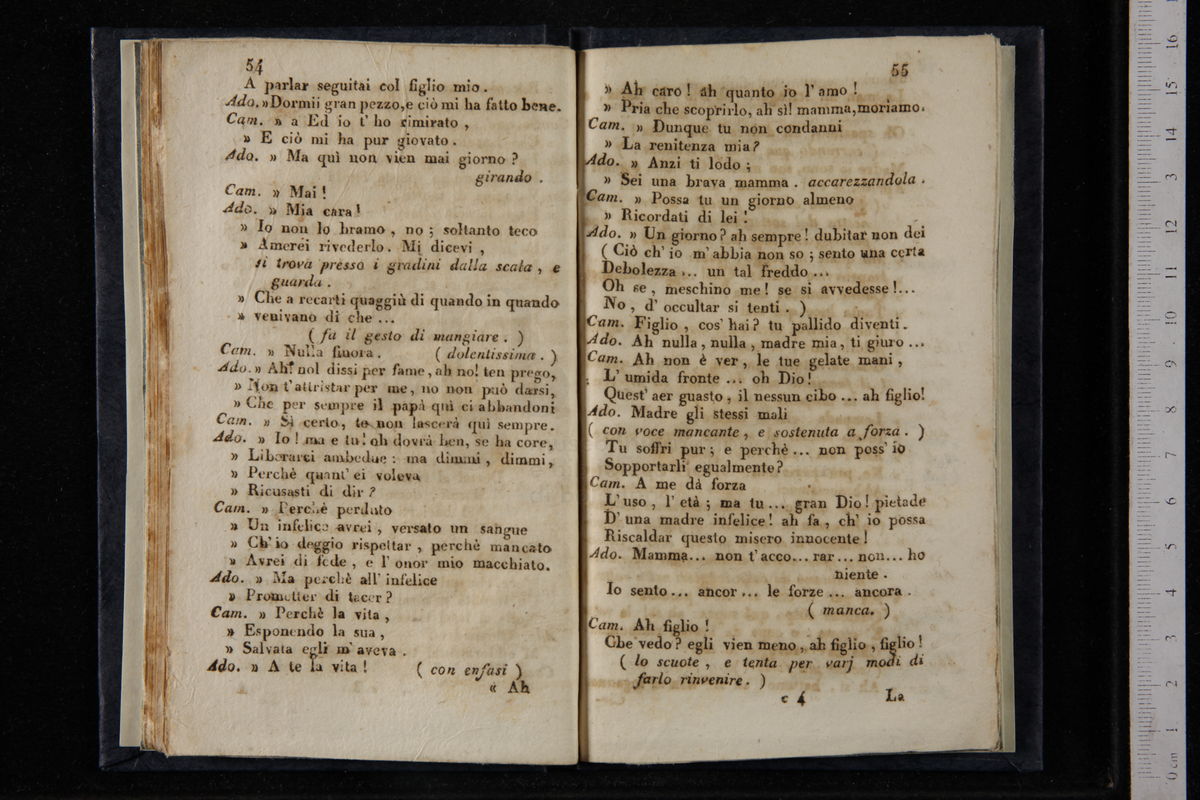 54
A parlar seguitai col figlio mio.
Ado. » Dormii gran pezzo, e ciò mi ha fatto bene.
Cam. » a Ed io t' ho rimirato ,
» E ciò mi ha pur giovato .
Ado. » Ma quì non vien mai giorno ?
girando .
Cam. » Mai !
Ado. » Mia cara !
» Io non lo bramo , no ; soltanto teco
» Amerei rivederlo . Mi dicevi ,
si trova presso i gradini dalla scala , e
guarda .
» Che a recarti quaggiù di quando in quando
» venivano di che ...
( fa il gesto di mangiare . )
Cam. » Nulla finora . ( dolentissima . )
Ado. » Ah! nol dissi per fame, ah no! ten prego,
» Non t' attristar per me, no non può darsi,
» Che per sempre il papà quì ci abbandoni
Cam. » Sì certo, te non lascerà quì sempre.
Ado. » Io ! ma e tu! oh dovrà ben, se ha core,
» Liberarci ambedue : ma dimmi , dimmi,
» Perchè quant' ei voleva
» Ricusasti di dir ?
Cam. » Perchè perduto
» Un infelice avrei , versato un sangue
» Ch' io deggio rispettar , perchè mancato
» Avrei di fede , e l' onor mio macchiato.
Ado. » Ma perchè all' infelice
» Prometter di tacer ?
Cam. » Perchè la vita ,
» Esponendo la sua ,
» Salvata egli m' aveva .
Ado. » A te la vita ! ( con enfasi )
« Ah
55
» Ah caro ! ah quanto io l' amo !
» Pria che scoprirlo, ah sì! mamma, moriamo.
Cam. » Dunque tu non condanni
» La renitenza mia ?
Ado. » Anzi ti lodo ;
» Sei una brava mamma . accarezzandola .
Cam. » Possa tu un giorno almeno
» Ricordati di lei !
Ado. » Un giorno ? ah sempre ! dubitar non dei
( Ciò ch' io m' abbia non so ; sento una certa
Debolezza ... un tal freddo ...
Oh se , meschino me ! se si avvedesse !...
No , d' occultar si tenti . )
Cam. Figlio , cos' hai ? tu pallido diventi .
Ado. Ah nulla , nulla , madre mia , ti giuro ...
Cam. Ah non è ver , le tue gelate mani ,
L' umida fronte ... oh Dio !
Quest' aer guasto , il nessun cibo ... ah figlio!
Ado. Madre gli stessi mali
( con voce mancante , e sostenuta a forza . )
Tu soffri pur ; e perchè ... non poss' io
Sopportarli egualmente ?
Cam. A me dà forza
L' uso , l' età ; ma tu ... gran Dio ! pietade
D' una madre infelice ! ah fa , ch' io possa
Riscaldar questo misero innocente !
Ado. Mamma... non t' acco... rar ... non... ho
niente .
Io sento ... ancor ... le forze ... ancora .
( manca. )
Cam. Ah figlio !
Che vedo ? egli vien meno , ah figlio , figlio !
( lo scuote , e tenta per varj modi di
farlo rinvenire . )
c 4 La
0 cm 1 2 3 4 5 6 7 8 9 10 11 12 13 14 15 16